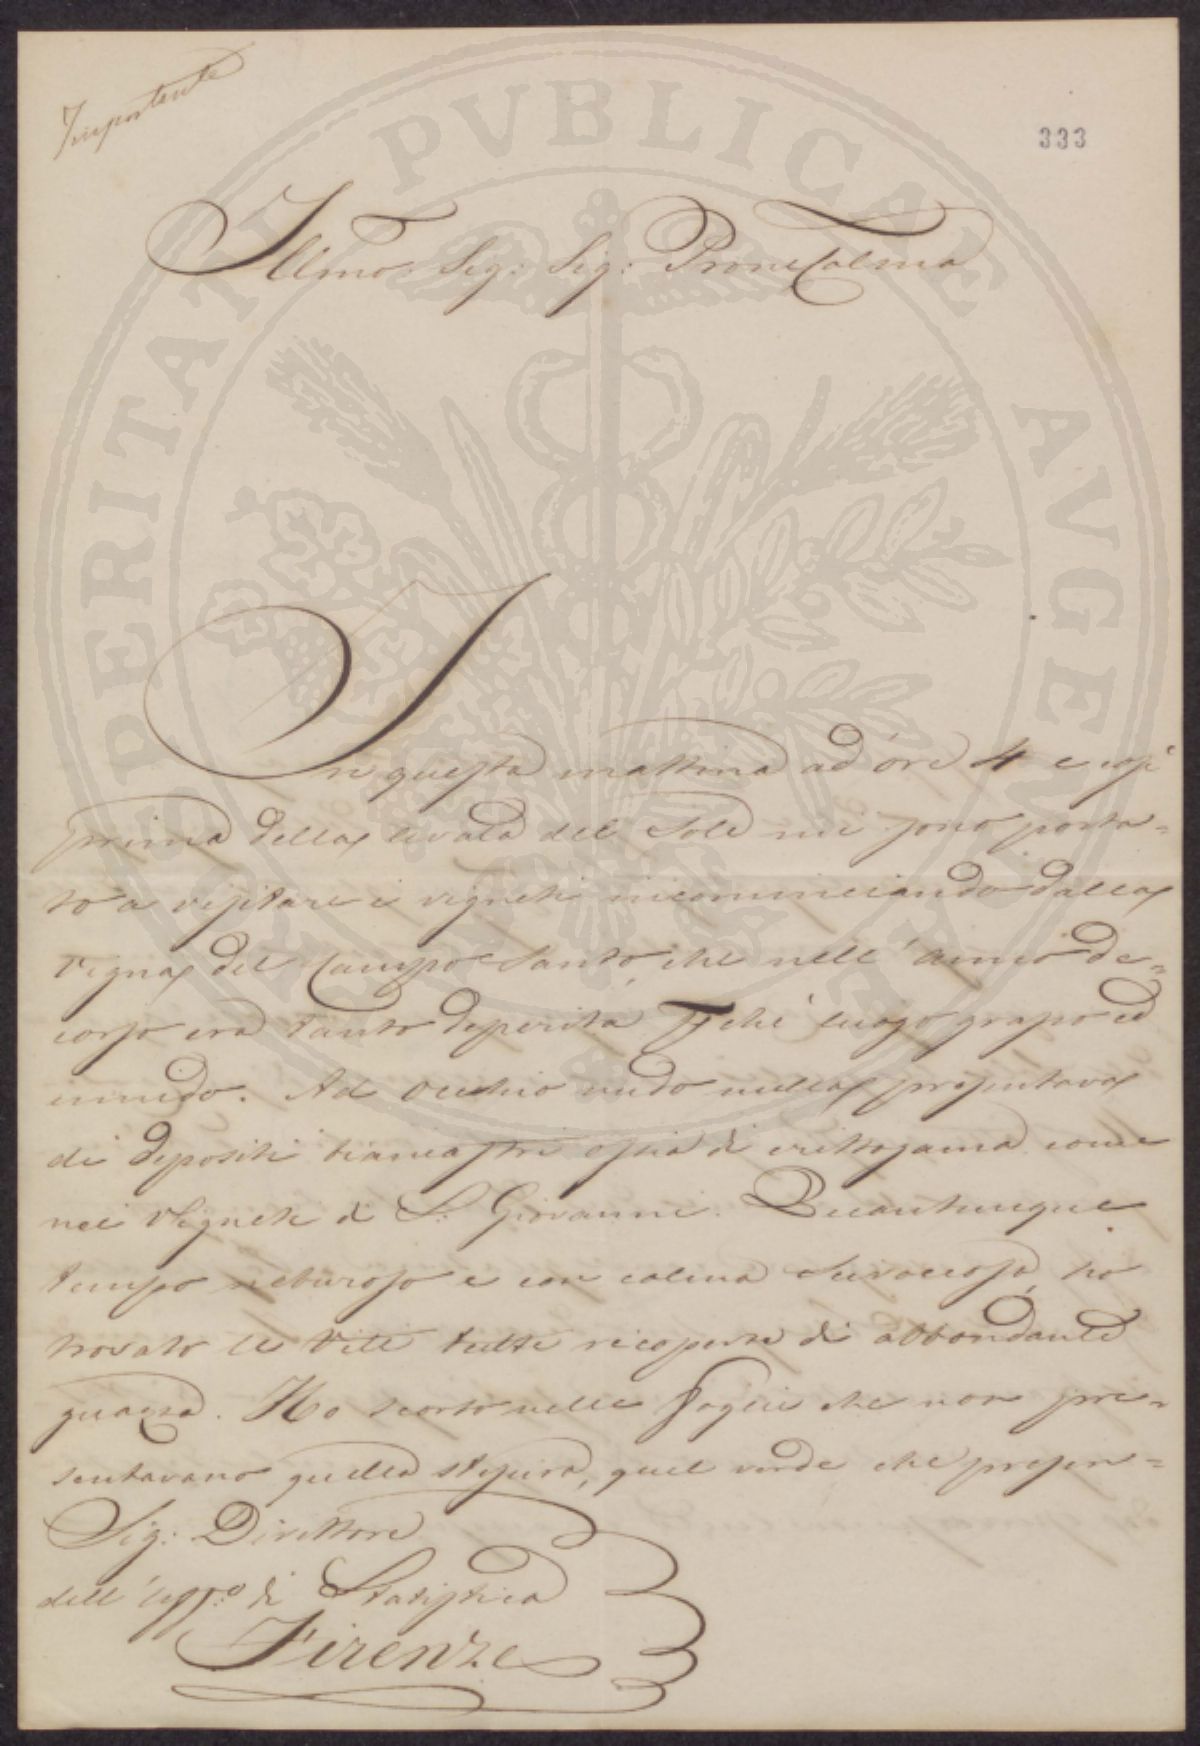 Importante
333
Illmo. Sig: Sig: Prone Colmo
In questa mattina ad ore 4 e così
prima della levata del Sole mi sono porta=
to a visitare i vigneti incominciando dalla
Vigna del Campo Santo, che nell'anno de=
corso era tanto deperita chè luogo grasso ed
umido. Ad occhio nudo nulla presentava
di depositi biancastri ossia di crittogama come
nei Vigneti di S. Giovanni. Quantunque
tempo e con calma Sciroccosa, ho
trovato le Viti tutte ricoperte di abbondante
guazza. Ho scorto nelle foglie che non pre=
sentavano quella, quel verde che presen=
Sig: Direttore
dell'Uffo. di Statistica
Firenze
PROSPERITATI PVBLICAE AVGENDAE